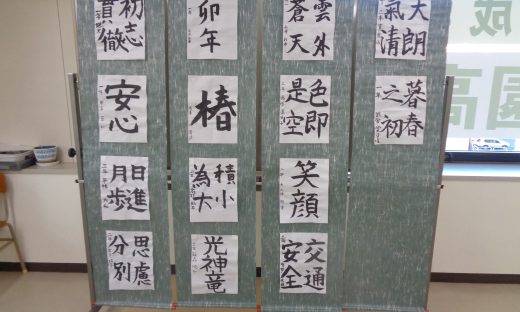 初志
貫徹
安心
日進
月歩
思慮
分別
卯年
椿
積小
為大
光神竜
雲外
蒼天
色即
是空
笑顔
交通
安全
天朗
氣清
暮春
之初
成
園高